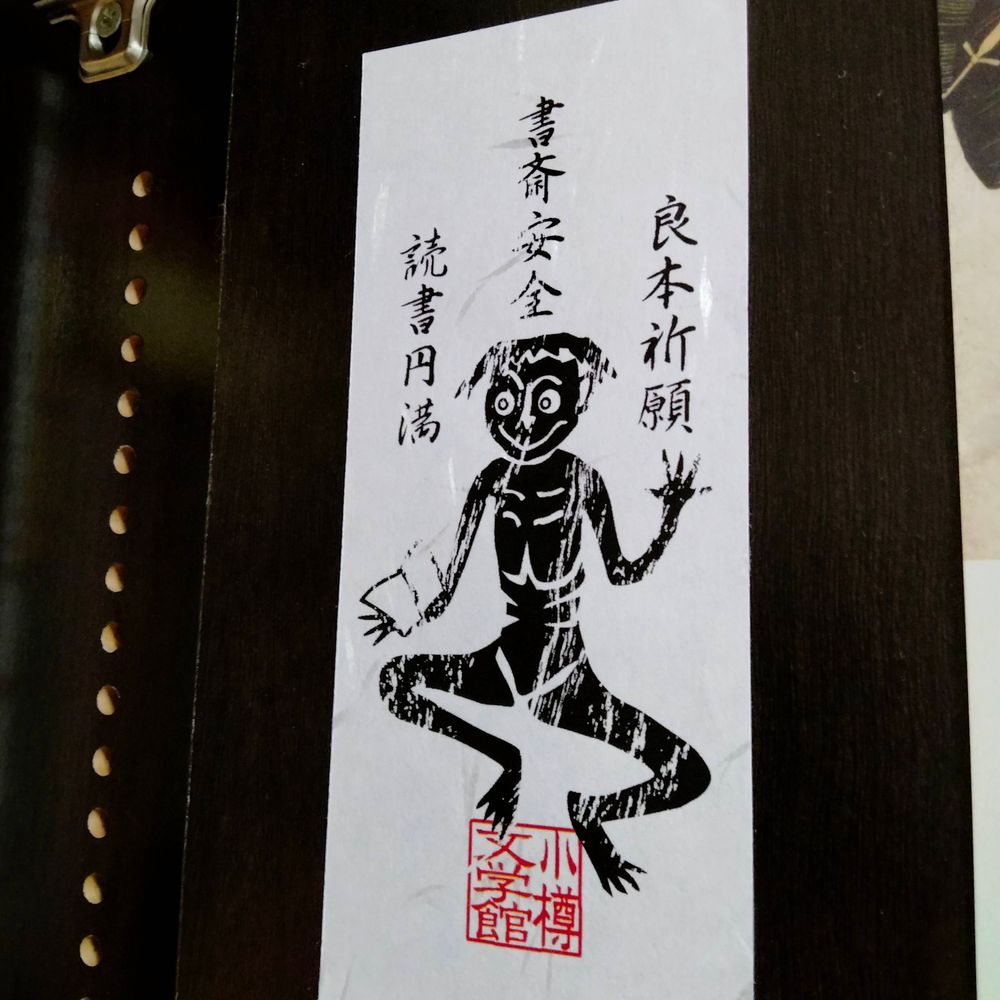 良本祈願
書斎安全
読書円満
小樽
文学館